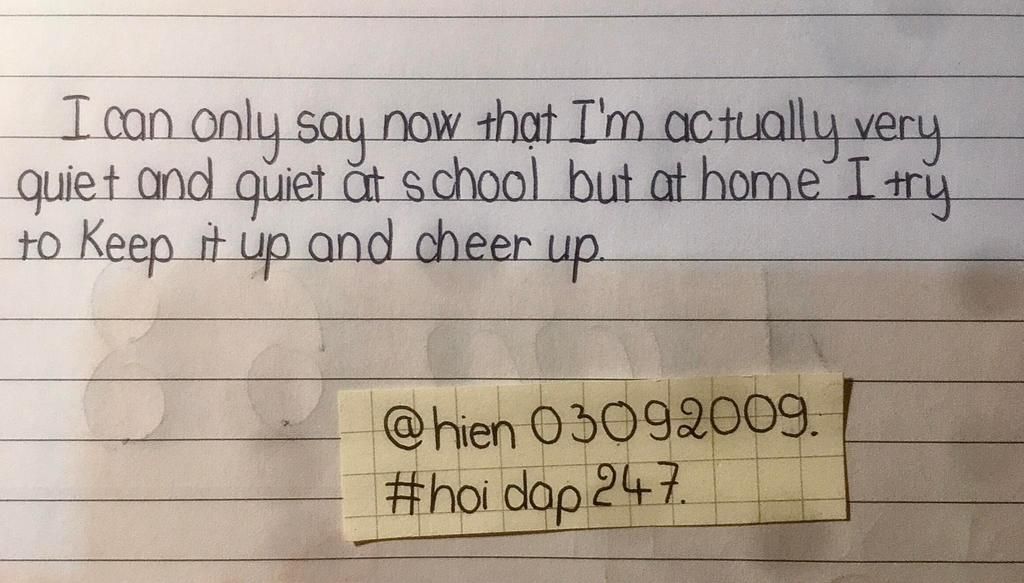 I can only say now that I'm actually very
quiet and quiet at school but at home I try
to Keep it up and cheer up.
@hien 03092009.
#hoi dap 247.